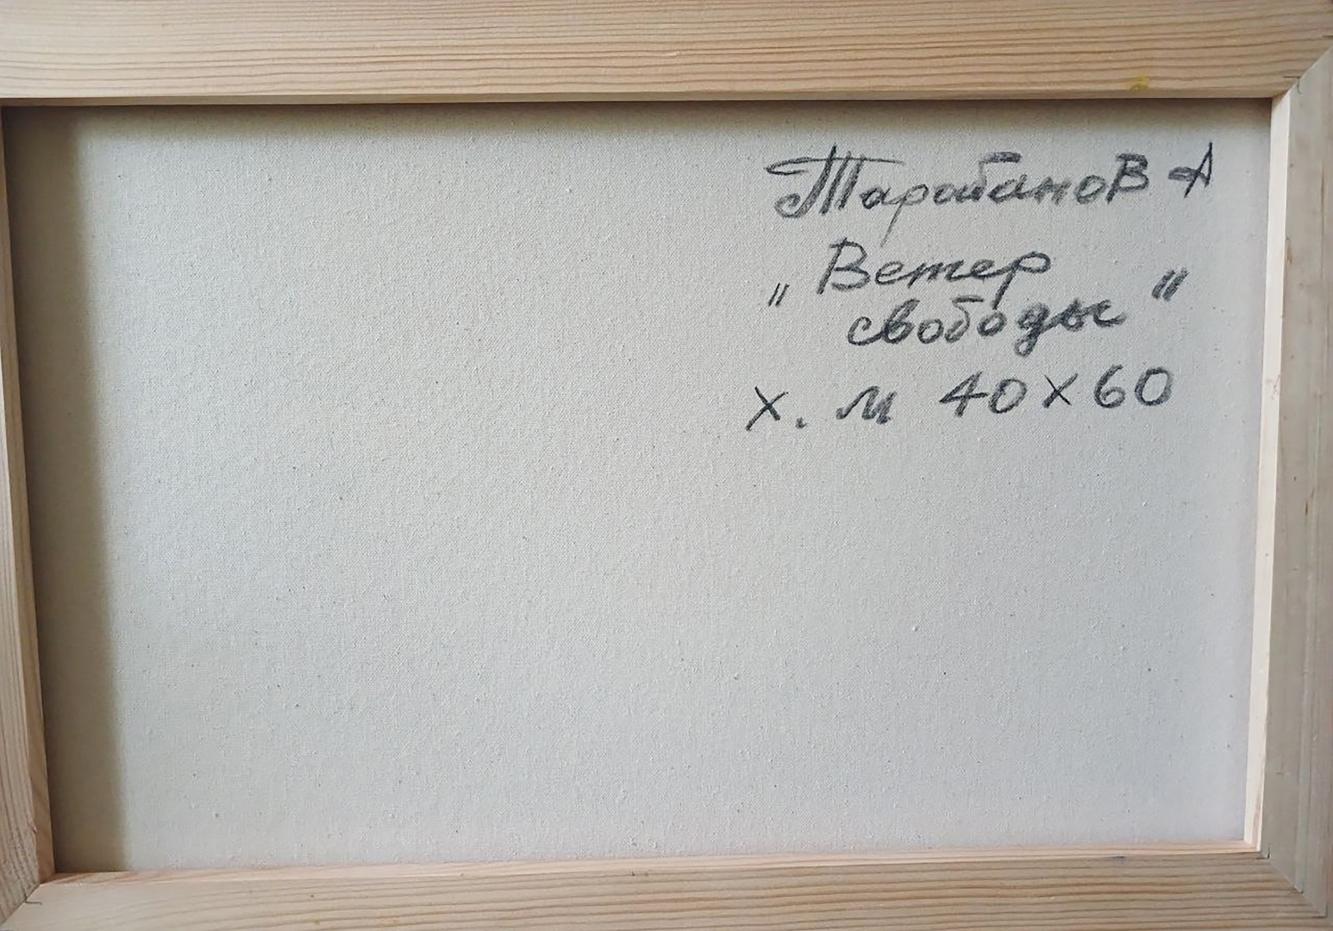 Тарабанов А
„Ветер
свободы"
х. м 40х60